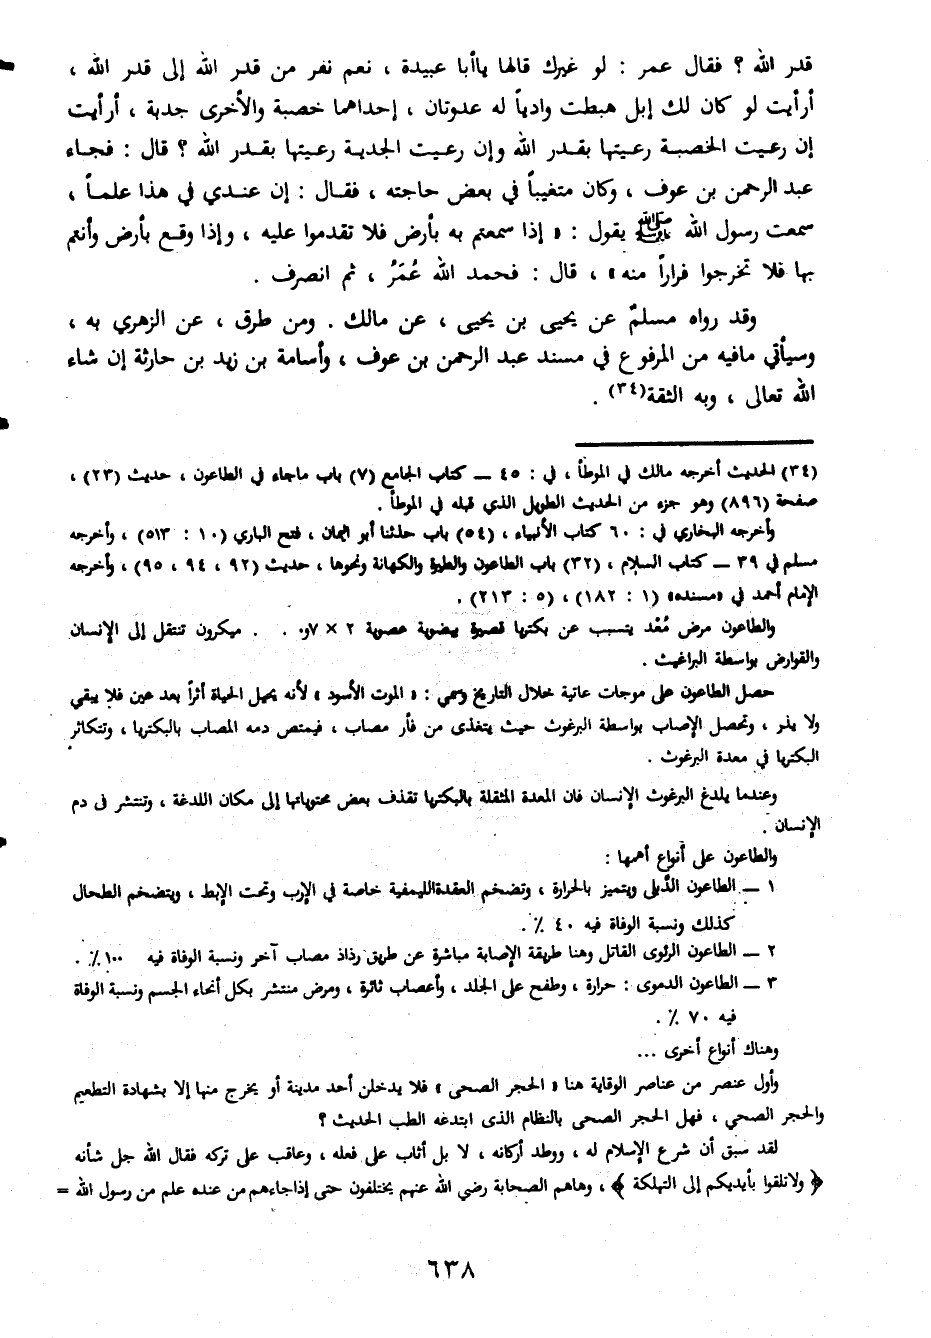 قدر الله ؟ فقال عمر : لو غيرك قالها ياأبا عبيدة ، نعم نفر من قدر الله إلى قدر الله ،
أرأيت لو كان لك إبل هبطت وادياً له عدوتان ، إحداهما خصبة والأخرى جدبة ، أرأيت
إن رعيت الخصبة رعيتها بقدر الله وإن رعيت الجدبة رعيتها بقدر الله ؟ قال : فجاء
عبد الرحمن بن عوف ، وكان متغيباً في بعض حاجته ، فقال : إن عندي في هذا علماً ،
سمعت رسول الله ﷺ يقول : « إذا سمعتم به بأرض فلا تقدموا عليه ، وإذا وقع بأرض وأنتم
بها فلا تخرجوا فراراً منه » ، قال : فحمد الله عُمَرُ ، ثم انصرف .
وقد رواه مسلمٌ عن يحيى بن يحيى ، عن مالك . ومن طرق ، عن الزهري به ،
وسيأتي مافيه من المرفوع في مسند عبد الرحمن بن عوف ، وأسامة بن زيد بن حارثة إن شاء
الله تعالى ، وبه الثقة(٣٤) .
(٣٤) الحديث أخرجه مالك في الموطأ ، في : ٤٥ ــ كتاب الجامع (٧) باب ماجاء في الطاعون ، حديث (٢٣) ،
صفحة (٨٩٦) وهو جزء من الحديث الطويل الذي قبله في الموطأ .
وأخرجه البخاري في : ٦٠ كتاب الأنبياء ، (٥٤) باب حدثنا أبو اليمان ، فتح الباري (١٠ : ٥١٣) ، وأخرجه
مسلم في ٣٩ ــ كتاب السلام ، (٣٢) باب الطاعون والطيرة والكهانة ونحوها ، حديث (٩٢ ، ٩٤ ، ٩٥) ، وأخرجه
الإمام أحمد في «مسنده» (١ : ١٨٢) ، (٥ : ٢١٣) .
والطاعون مرض مُعْد يتسبب عن بكتريا قصيرة بيضوية عصوية ٢ × ٧و٠ . . ميكرون تنتقل إلى الإنسان
والقوارض بواسطة البراغيث .
حصل الطاعون على موجات عاتية خلال التاريخ وسمي : « الموت الأسود » لأنه يحيل الحياة أثراً بعد عين فلا يبقي
ولا يذر ، وتحصل الإصاب بواسطة البرغوث حيث يتغذى من فأر مصاب ، فيمتص دمه المصاب بالبكتريا ، وتتكاثر
البكتريا في معدة البرغوث .
وعندما يلدغ البرغوث الإنسان فان المعدة المثقلة بالبكتريا تقذف بعض محتوياتها إلى مكان اللدغة ، وتنتشر فى دم
الإنسان .
والطاعون على أنواع أهمها :
١ ــ الطاعون الدَّبلى ويتميز بالحرارة ، وتضخم العقدةالليمفية خاصة في الإرب وتحت الإبط ، ويتضخم الطحال
كذلك ونسبة الوفاة فيه ٤٠ ٪ .
٢ ــ الطاعون الرئوى القاتل وهنا طريقة الإصابة مباشرة عن طريق رذاذ مصاب آخر ونسبة الوفاة فيه ١٠٠٪ .
٣ ــ الطاعون الدموى : حرارة ، وطفح على الجلد ، وأعصاب ثائرة ، ومرض منتشر بكل أنحاء الجسم ونسبة الوفاة
فيه ٧٠ ٪ .
وهناك أنواع أخرى ...
وأول عنصر من عناصر الوقاية هنا « الحجر الصحى » فلا يدخلن أحد مدينة أو يخرج منها إلا بشهادة التطعيم
والحجر الصحي ، فهل الحجر الصحى بالنظام الذى ابتدعه الطب الحديث ؟
لقد سبق أن شرع الإسلام له ، ووطد أركانه ، لا بل أثاب على فعله ، وعاقب على تركه فقال الله جل شأنه
﴿ ولاتلقوا بأيديكم إلى التهلكة ﴾ ، وهاهم الصحابة رضي الله عنهم يختلفون حتى إذاجاءهم من عنده علم من رسول الله =
٦٣٨